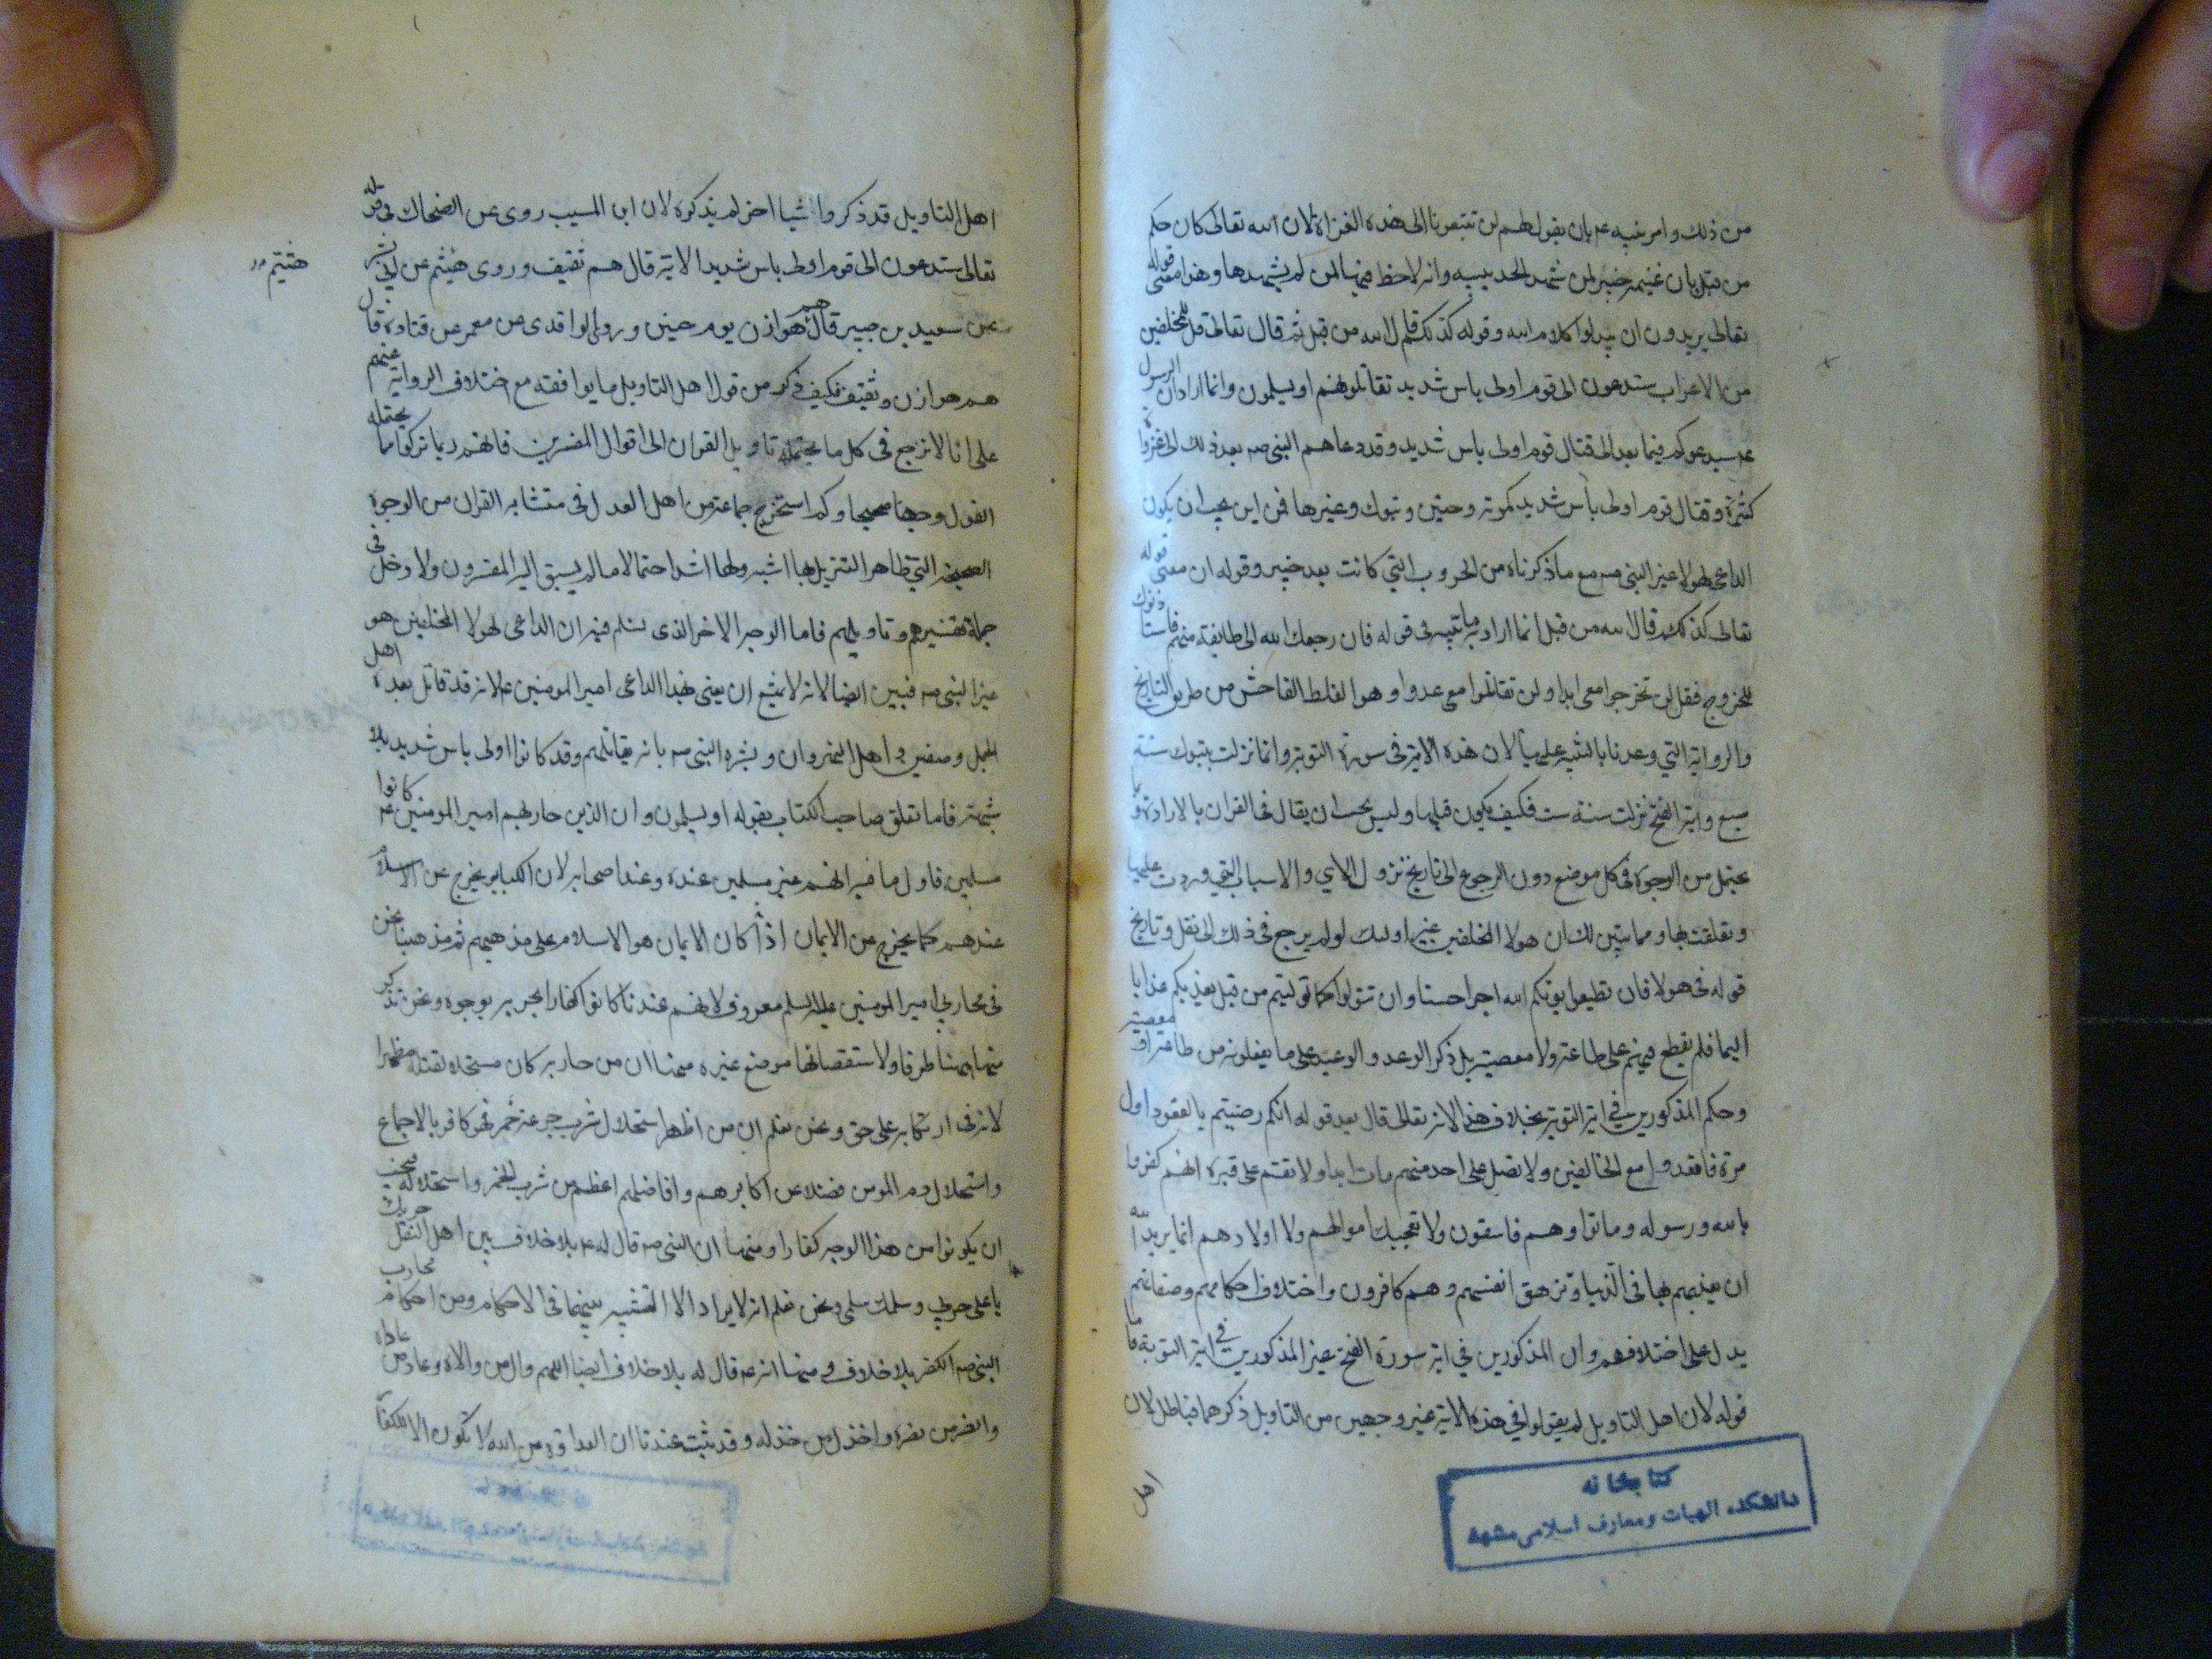 من ذلك وامر نبيه عم بان يقول لهم لن تتبعونا الى هذه الغزاة لان الله تعالى كان حكم
من قبل بان غنيمة خيبر لمن شهد الحديبيه وانه لا حظ فيها لمن لم يشهدها وهذا معنى قوله
تعالى يريدون ان يبدلوا كلام الله وقوله كذلكم قال الله من قبل ثم قال تعالى قل للمخلفين
من الاعراب ستدعون الى قوم اولى باس شديد تقاتلونهم او يسلمون وانما اراد ان الرسول
عم سيدعوكم فيما بعد الى قتال قوم اولى باس شديد وقد دعاهم النبى صم بعد ذلك الى غزوات
كثيرة وقتال قوم اولى باس شديد كموته وحنين وتبوك وغيرها فمن اين يجب ان يكون
الداعى لهولا غير النبى صم مع ما ذكرناه من الحروب التي كانت بعد خيبر وقوله ان معنى قوله
تعالى كذلكم قال الله من قبل انما اراد به ما بينه فى قوله فان رجعك الله الى طايفة منهم فاستاذنوك
للخروج فقل لن تخرجوا معى ابدا ولن تقاتلوا معى عدوا وهو الغلط الفاحش من طريق التاريخ
والرواية التي وعدنا بالتنبيه عليها لان هذه الاية فى سورة التوبة وانما نزلت بتبوك سنة
سبع واية الفتح نزلت سنة ست فكيف يكون قبلها وليس يجب ان يقال فى القران بالارادة وبما
يحتمل من الوجوه فى كل موضع دون الرجوع الى تاريخ نزول الاي والاسباب التي وردت عليها
وتعلقت بها ومما يبين لك ان هولا المخلفين غير اولئك لو لم يرجع فى ذلك الى نقل وتاريخ
قوله فى هولا فان تطيعوا يوتكم الله اجرا حسنا وان تتولوا كما توليتم من قبل يعذبكم عذابا
اليما فلم يقطع فيهم على طاعة ولا معصية بل ذكر الوعد والوعيد على ما يفعلونه من طاعة او معصية
وحكم المذكورين في اية التوبة بخلاف هذا لانه تعالى قال بعد قوله انكم رضيتم بالقعود اول
مرة فاقعدوا مع الخالفين ولا تصل على احد منهم مات ابدا ولا تقم على قبره انهم كفروا
بالله ورسوله وماتوا وهم فاسقون ولا تعجبك اموالهم ولا اولادهم انما يريد الله
ان يعذبهم بها فى الدنيا وتزهق انفسهم وهم كافرون واختلاف احكامهم وصفاتهم
يدل على اختلافهم وان المذكورين في اية سورة الفتح غير المذكورين في اية التوبة فاما
قوله لان اهل التاويل لم يقولوا في هذه الاية غير وجهين من التاويل ذكرهما فباطل لان
اهل
كتابخانه
دانشكده الهيات ومعارف اسلامى مشهد
اهل التاويل قد ذكروا شيا اخر لم يذكره لان ابن المسيب روى عن الضحاك فى قوله
تعالى ستدعون الى قوم اولى باس شديد الاية قال هم ثقيف وروى هيثم عن ابي بشر
هشيم
عن سعيد بن جبير قال هم هوازن يوم حنين وروى الواقدى عن معمر عن قتادة قال
هم هوازن وثقيف فكيف ذكر من قول اهل التاويل ما يوافقه مع اختلاف الرواية عنهم
على انا لا نرجع فى كل ما يحتمله تاويل القران الى اقوال المفسرين فانهم ربما تركوا مما يحتمله
القول وجها صحيحا وكم استخرج جماعة من اهل العدل فى متشابه القران من الوجوه
الصحيحة التي ظاهر التنزيل بها اشبه ولها اشد احتمالا ما لم يسبق اليه المفسرون ولا دخل فى
جملة تفسيرهم وتاويلهم فاما الوجه الاخر الذى نسلم فيه ان الداعى لهولا المخلفين هو
غير النبى صم فبين ايضا لانه لا يمتنع ان يعنى بهذا الداعى امير المومنين عم لانه قد قاتل بعده اهل
الجمل وصفين واهل النهروان وبشره النبى صم بانه يقاتلهم وقد كانوا اولى باس شديد بلا
شبهة فاما تعلق صاحب الكتاب بقوله او يسلمون وان الذين حاربهم امير المومنين عم كانوا
مسلمين فاول ما فيه انهم غير مسلمين عنده وعند اصحابه لان الكباير يخرج عن الاسلام
عندهم كما يخرج عن الايمان اذا كان الايمان هو الاسلام على مذهبهم ثم مذهبنا نحن
فى محاربي امير المومنين عليه السلم معروف لانهم عندنا كانوا كفارا بحربه بوجوه ونحن نذكر
منها ههنا طرفا ولاستقصائها موضع غيره منها ان من حاربه كان مستحلا لقتله مظهرا
لانه فى ارتكابه على حق ونحن نعلم ان من اظهر استحلال شرب جرعة خمر فهو كافر بالاجماع
واستحلال دم المومن فضلا عن اكابرهم وافاضلهم اعظم من شرب الخمر واستحلاله فيجب
ان يكونوا من هذا الوجه كفارا ومنها ان النبى صم قال له عم بلا خلاف بين اهل النقل حربك
يا على حربي وسلمك سلمى ونحن نعلم انه لا يراد الا التشبيه بينهما فى الاحكام ومن احكام محارب
النبى صم الكفر بلا خلاف ومنها انه عم قال له بلا خلاف ايضا اللهم وال من والاه وعاد من عاداه
وانصر من نصره واخذل من خذله وقد ثبت عندنا ان العداوة من الله لا تكون الا للكفار